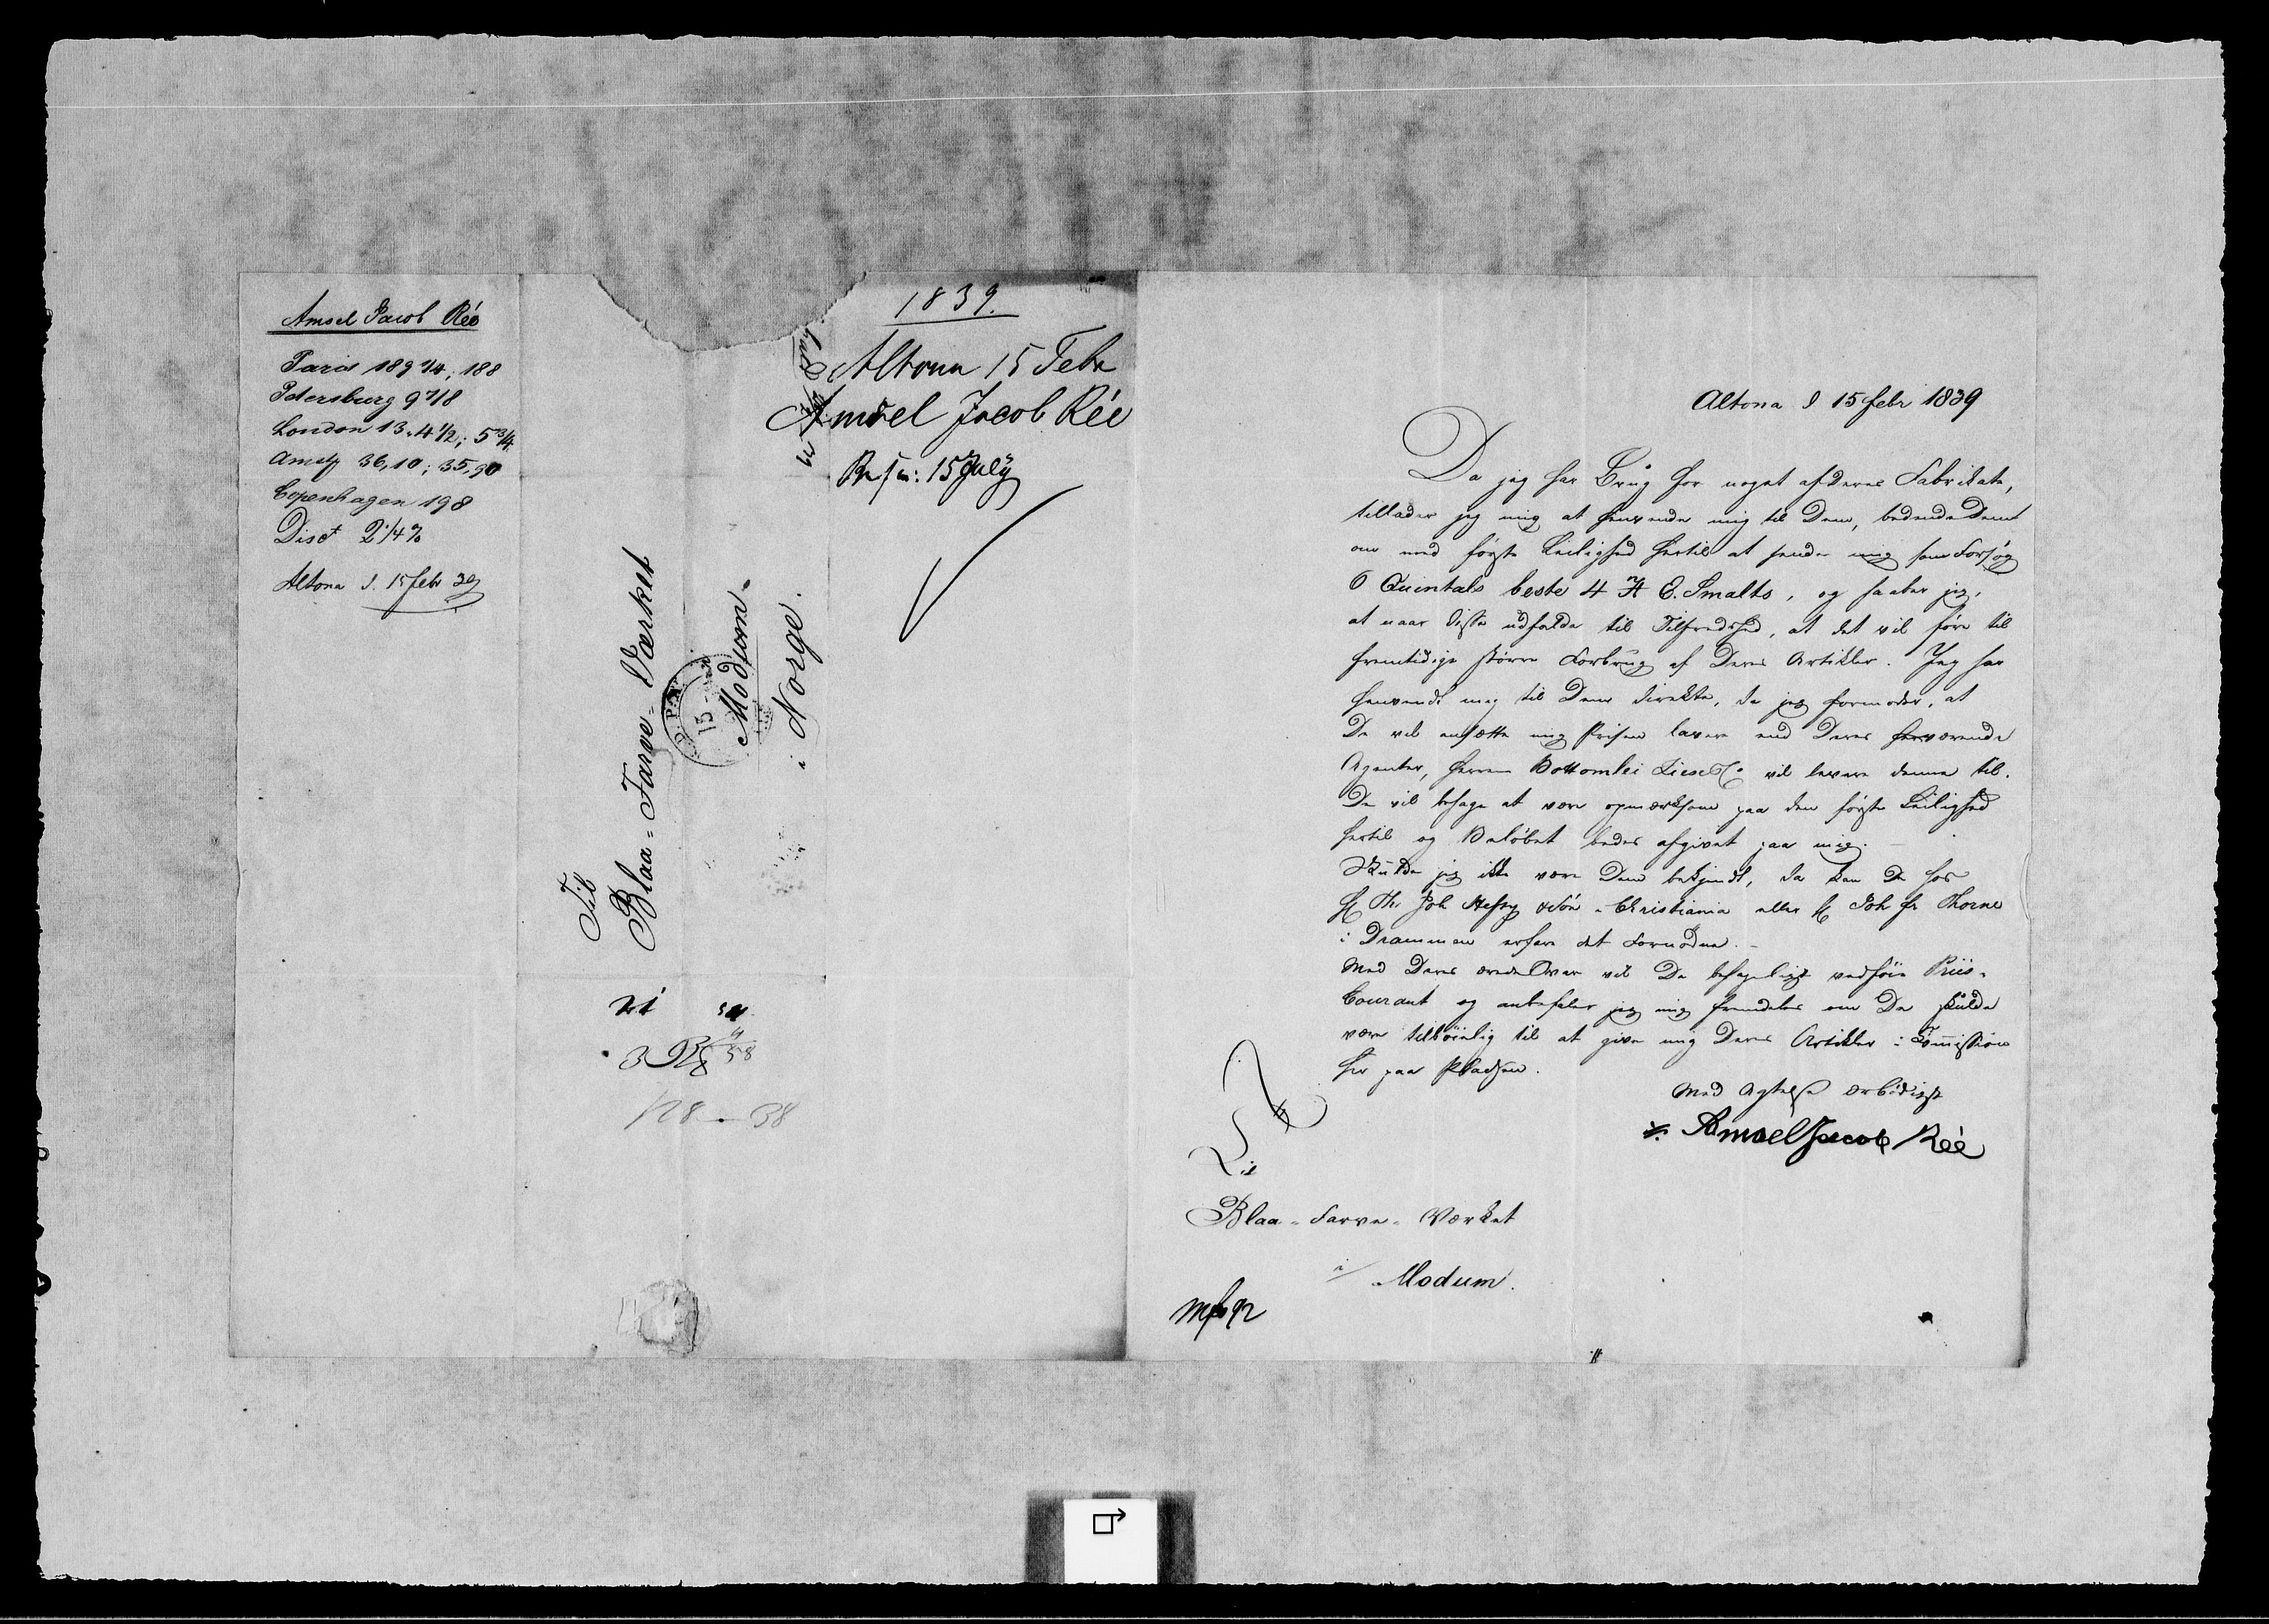 Amsel Jacob Rée
Paris 189 1/4; 188
Petersburg 9 7/8
London 13.4 1/2; 5 3/4
Amst 36,10; 35,90
Copenhagen 198
Disct 2 1/4 %
Altona d. 15 febr 39
1839.
Altona 15 Febr
Amsel Jacob Rée
15 July
Til
Blaa-Farve-Værket
Modum.
i Norge.
128 - 38
Altona d 15 febr 1839
Da jeg har Brug for noget af deres Fabrikate,
tillader jeg mig at henvende mig til Dem, bedende Dem
om med første Leilighed hertil at sende mig som Forsøg
6 Quintals beste 4 E. Smalts, og haaber jeg,
at naar disse udfalde til Tilfredshed, at det vil føre til
fremtidige større Forbrug af Deres Artikler. Jeg har
henvendt mig til Dem direkte, da jeg formoder, at
De vil ansætte mig Prisen lavere end Deres herværende
Agenter, Herrn Bottomlei Liese & Co vil levere denne til.
De vil behage at være opmærksom paa den første Leilighed
hertil og Beløbet bedes afgivet paa mig.
Skulde jeg ikke være Dem bekjendt, da kan De hos
H Th. Joh. Heftye & Søn Christiania eller H Joh fr Thorne
i Drammen erfare det Fornødne.
Med Deres ærede Svar vil De behageligst vedføie Priis-
Courant og anbefaler jeg mig fremdeles om De skulde
være tilbøielig til at give mig Deres Artikler i Commission
her paa Pladsen.
Med Agtelse ærbødigst
Amsel Jacob Rée
Til
Blaa-Farve-Værket
i Modum.